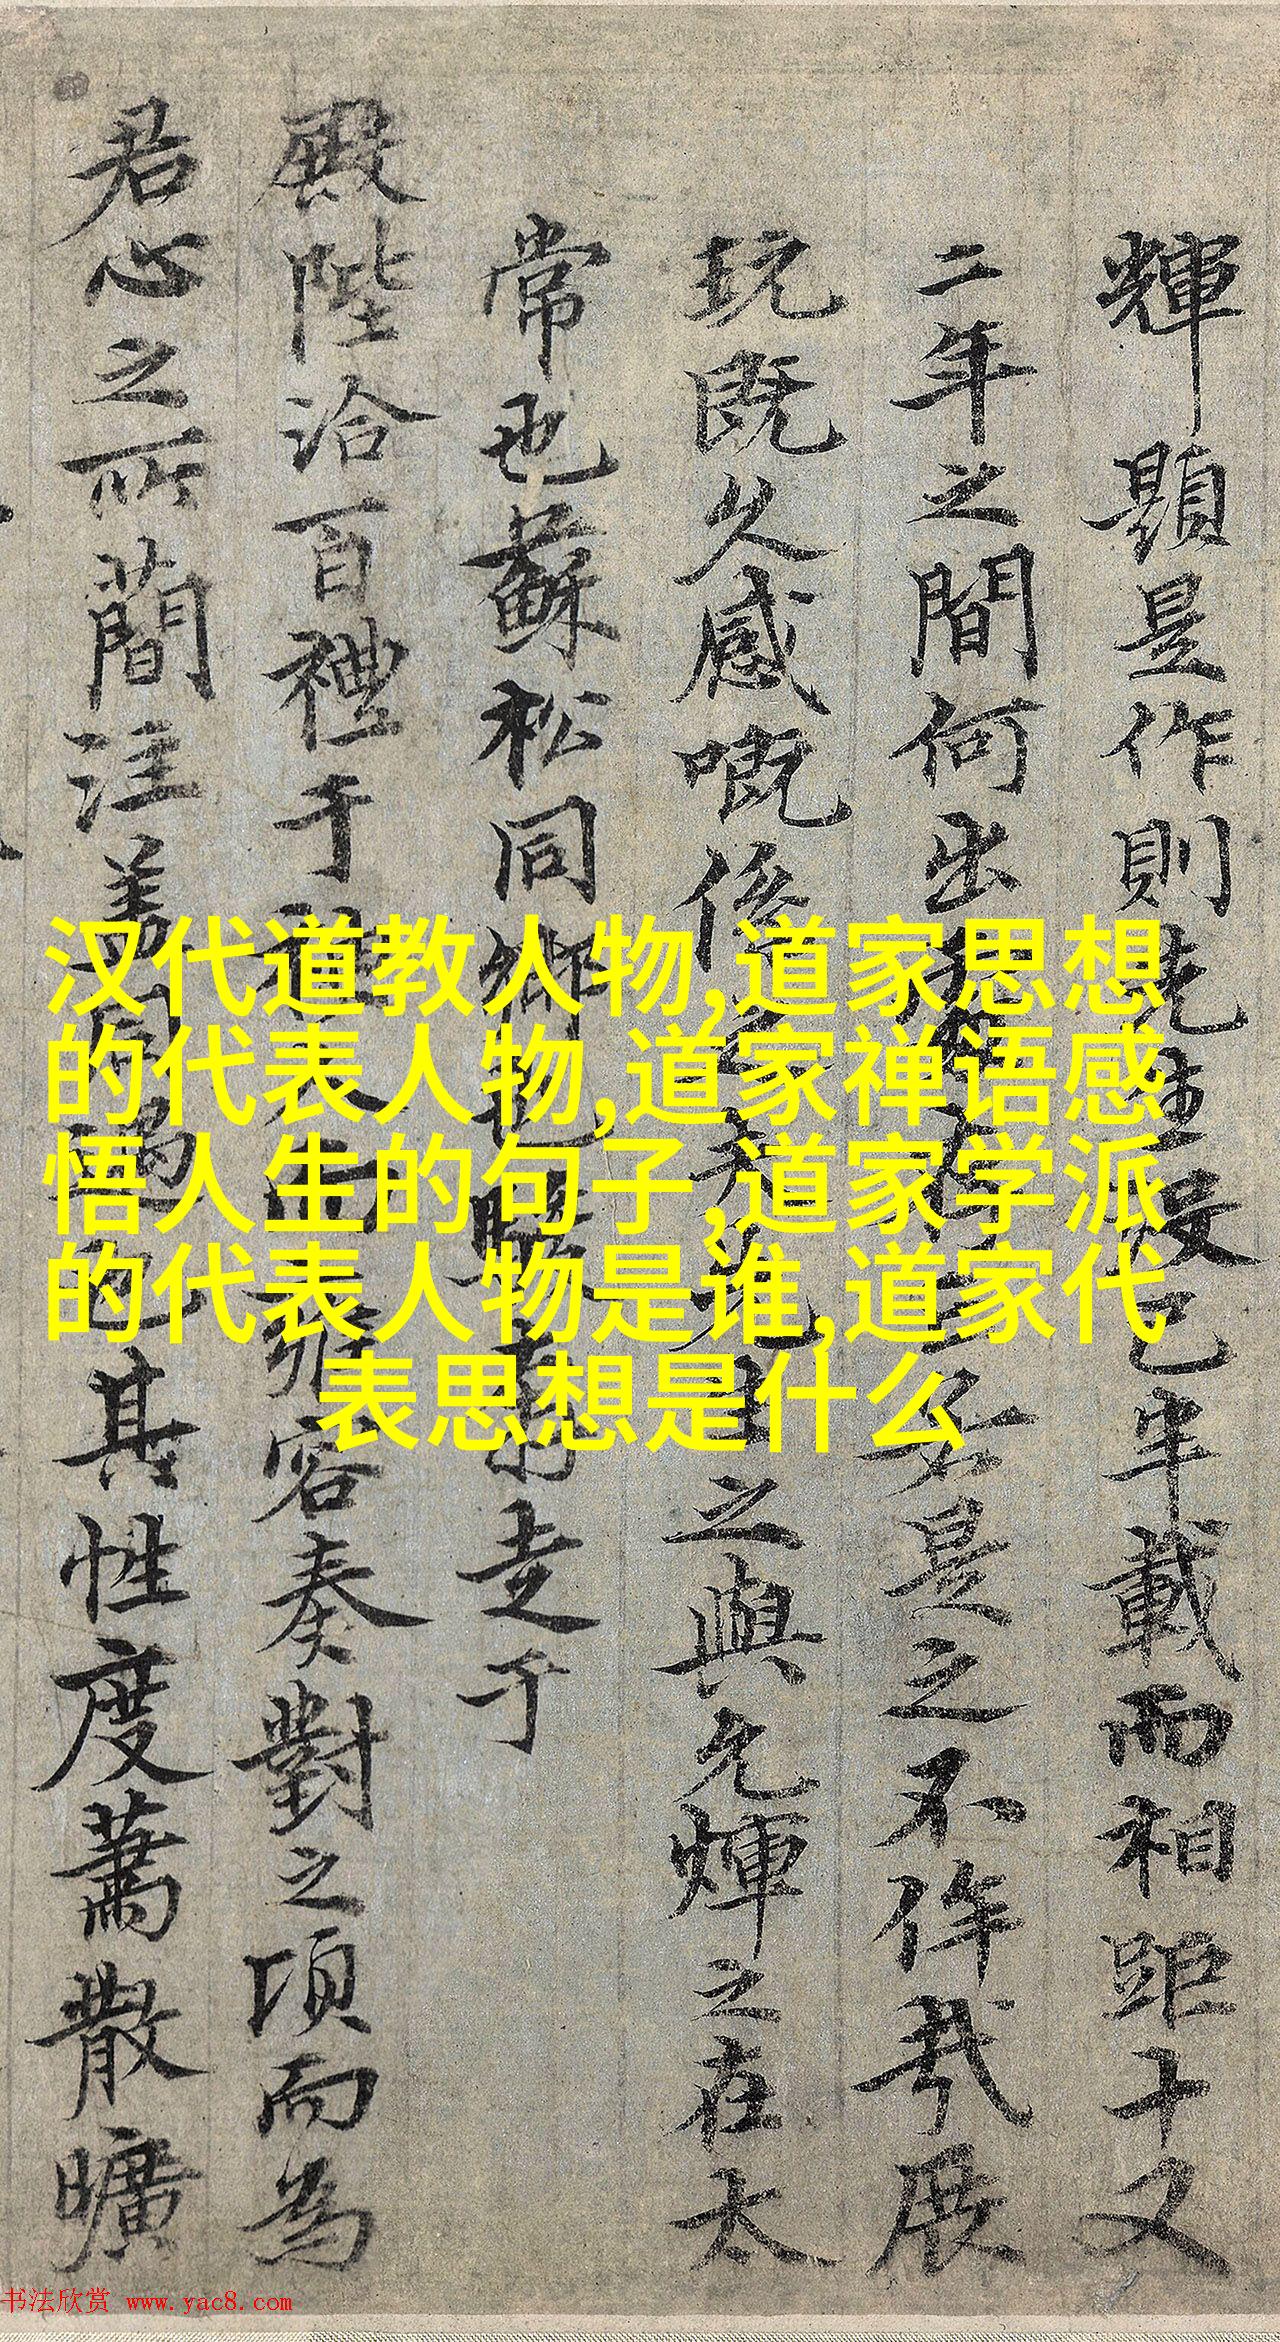 輝顯是作則先生歿已半載而相距十又
二年之間何出
是之不侔哉展
玩既久感嘅後
之與允煇之在太
常也蘇松同鄉也
走于
殿陛洽百禮于
容奏對之頃而為
君心之所簡注蓋
其性度蕭散曠
汉代道教人物,道家思想
的代表人物,道家禅语感
悟人生的句子,道家学派
的代表人物是谁,道家代
表思想是什么
书法欣赏 www.yac8.com